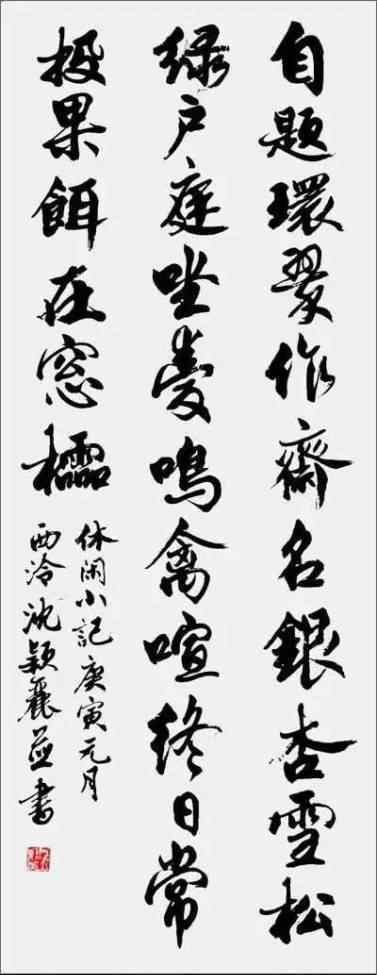 自題環翠作齋名銀杏雪松
綠户庭坐愛鳴禽喧終日常
投果餌在窗櫺
休闲小記庚寅元月
西泠沈颖麗並書